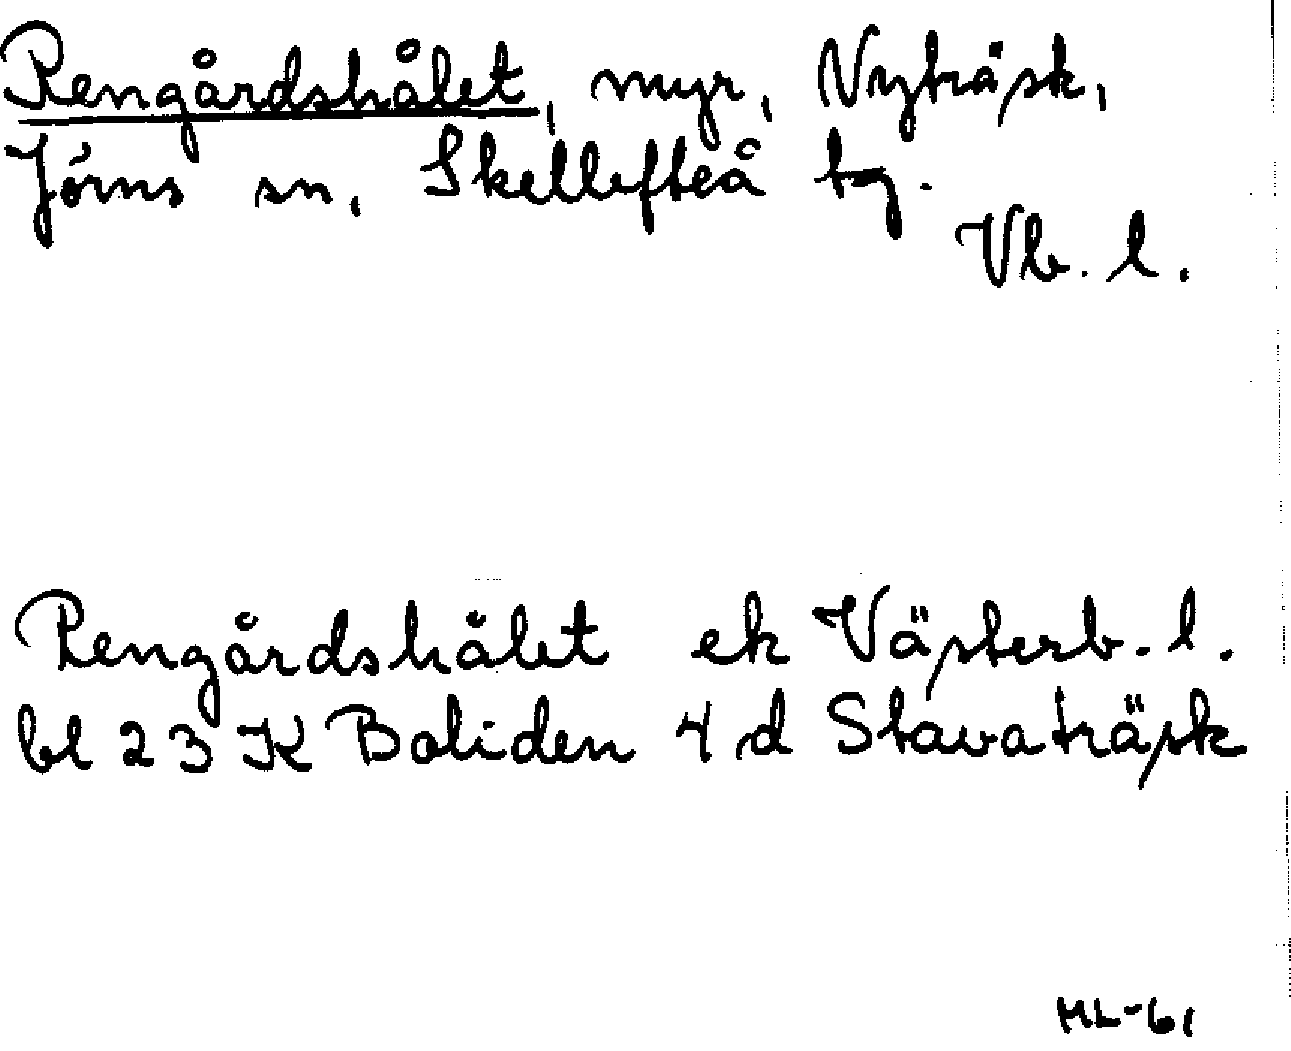 Rengårdshålet, myr, Nyträsk,
Jörns sn, Skellefteå tg.
Vb. l.
Rengårdshålet ek Västerb. l.
bl 23 K Boliden 4 d Stavaträsk
ML-61